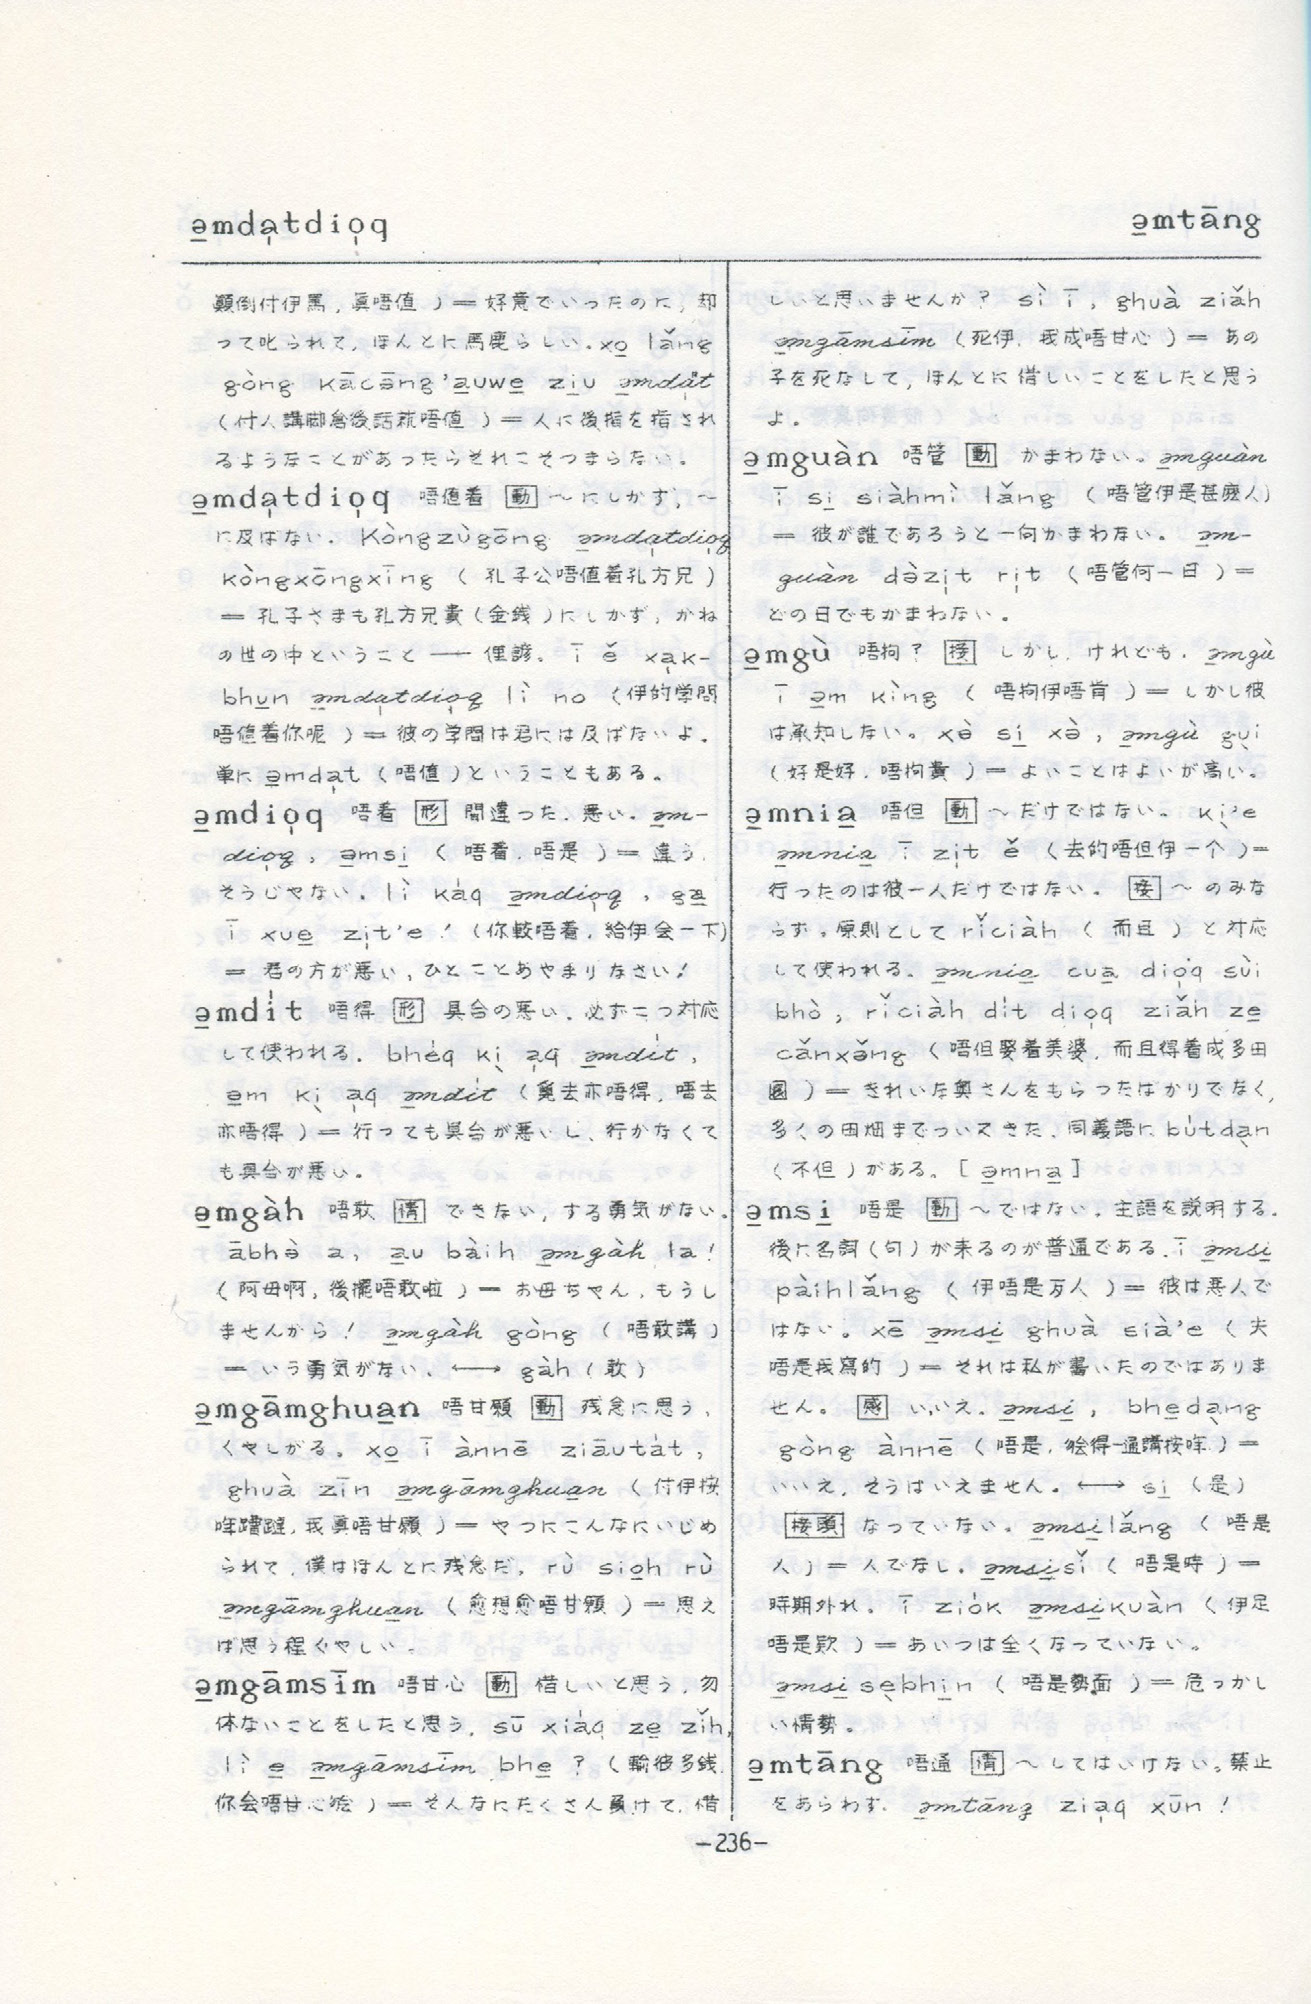 ə̱mda̩tdio̩q
ə̱mtāng
顛倒付伊罵，眞唔値 ）＝ 好意でいったのに，却
って叱られて，ほんとに馬鹿らしい。xo̱ lǎng
gòng kācāng'a̱uwe̱ zi̱u ə̱mdȧt
（付人講脚倉後話就唔値 ）＝ 人に後指を指され
るようなことがあったらそれこそつまらない。
ə̱mda̩tdio̩q 唔値着 [動] 〜にしかず，〜
に及ばない． Kòngzùgōng ə̱mda̩tdio̩q
kòngxōngxīng （ 孔子公唔値着孔方兄 ）
＝ 孔子さまも孔方兄貴（金銭）にしかず，かね
の世の中ということ ── 俚諺．ī ě xa̩k-
bhu̱n ə̱mda̩tdio̩q lì no （伊的学問
唔値着你呢 ）＝ 彼の学問は君には及ばないよ．
単に ə̱mda̩t（唔値）ということもある。
ə̱mdio̩q 唔着 [形] 間違った．悪い．ə̱m-
dio̩q , ə̱msi̱ （ 唔着．唔是 ）＝ 違う．
そうじゃない．lì kȧq ə̱mdio̩q , ga̱
ī xue̱ zi̩t'e ! （你較唔着，給伊会一下）
＝ 君の方が悪い，ひとことあやまりなさい！
ə̱mdi̍t 唔得 [形] 具合の悪い．必ず二つ対応
して使われる．bhėq ki̩ a̩q ə̱mdi̍t ,
ə̱m ki̩ a̩q ə̱mdi̍t （覓去亦唔得，唔去
亦唔得 ）＝ 行っても具合が悪いし，行かなくて
も具合が悪い。
ə̱mgàh 唔敢 [情] できない，する勇気がない．
ābhə̀ a, a̱u bàih ə̱mgàh la!
（阿母啊，後擺唔敢啦 ）＝ お母ちゃん，もうし
ませんから！ ə̱mgàh gòng （ 唔敢講 ）
＝ いう勇気がない．⟷ gàh（敢）
ə̱mgāmghua̱n 唔甘願 [動] 残念に思う，
くやしがる。xo̱ ī ànnē ziāutȧt ,
ghuà zīn ə̱mgāmghua̱n （付伊按
哖蹧躂，我眞唔甘願 ）＝ やつにこんなにいじめ
られて，僕はほんとに残念だ，rù sio̱h rù
ə̱mgāmghua̱n （愈想愈唔甘願 ）＝ 思え
ば思う程くやしい．
ə̱mgāmsīm 唔甘心 [動] 惜しいと思う，勿
体ないことをしたと思う．sū xiȧq ze̱ zǐh,
lì e̱ ə̱mgāmsīm bhe̱ ? （輸彼多銭，
你会唔甘心獪 ）＝ そんなにたくさん負けて，惜
しいと思いませんか？ sì ī , ghuà ziǎh
ə̱mgāmsīm （死伊，我成唔甘心 ）＝ あの
子を死なして，ほんとに惜しいことをしたと思う
よ．
ə̱mguàn 唔管 [動] かまわない．ə̱mguàn
ī si̱ siàhmì lǎng （ 唔管伊是甚麽人）
＝ 彼が誰であろうと一向かまわない。ə̱m-
guàn də̀zi̩t ri̩t （唔管何一日 ）＝
どの日でもかまわない．
ə̱mgù 唔拘？ [接] しかし，けれども．ə̱mgù
ī ə̱m kìng （ 唔拘伊唔肯 ）＝ しかし彼
は承知しない。xə̀ si̱ xə̀ , ə̱mgù gu̩i
（好是好，唔拘貴 ）＝ よいことはよいが高い。
ə̱mnia̱ 唔但 [動] 〜だけではない． ki̩'e
ə̱mnia̱ ī zi̩t ě （去的唔但伊一个）＝
行ったのは彼一人だけではない。 [接] 〜のみな
らず。原則として rǐciàh （ 而且 ）と対応
して使われる．ə̱mnia̱ cua̱ dio̩q sùi
bhò , rǐciàh di̍t dio̩q ziǎh ze̱
cǎnxə̌ng （唔但娶着美婆，而且得着成多田
園 ）＝ きれいな奥さんをもらったばかりでなく，
多くの田畑までついてきた．同義語に bu̍tda̱n
（不但）がある．[ ə̱mna̱ ]
ə̱msi̱ 唔是 [動] 〜ではない．主語を説明する．
後に名詞（句）が来るのが普通である．ī ə̱msi̱
pàihlǎng （ 伊唔是歹人 ）＝ 彼は悪人で
はない。xē ə̱msi̱ ghuà sià'e （夫
唔是我寫的 ）＝ それは私が書いたのではありま
せん。 [感] いいえ．ə̱msi̱ , bhe̱da̩ng
gòng ànnē （唔是，獪得通講按哖 ）＝
いいえ．そうはいえません。⟷ si̱（是）
[接頭] なっていない。ə̱msi̱lǎng （ 唔是
人）＝ 人でなし．ə̱msi̱sǐ （ 唔是時 ）＝
時期外れ。 ī ziȯk ə̱msi̱kuàn （伊足
唔是款 ）＝ あいつは全くなっていない。
ə̱msi̱se̩bhi̱n （ 唔是勢面 ）＝ 危っかし
い情勢。
ə̱mtāng 唔通 [情] 〜してはいけない。禁止
をあらわす．ə̱mtāng zia̩q xūn !
-236-